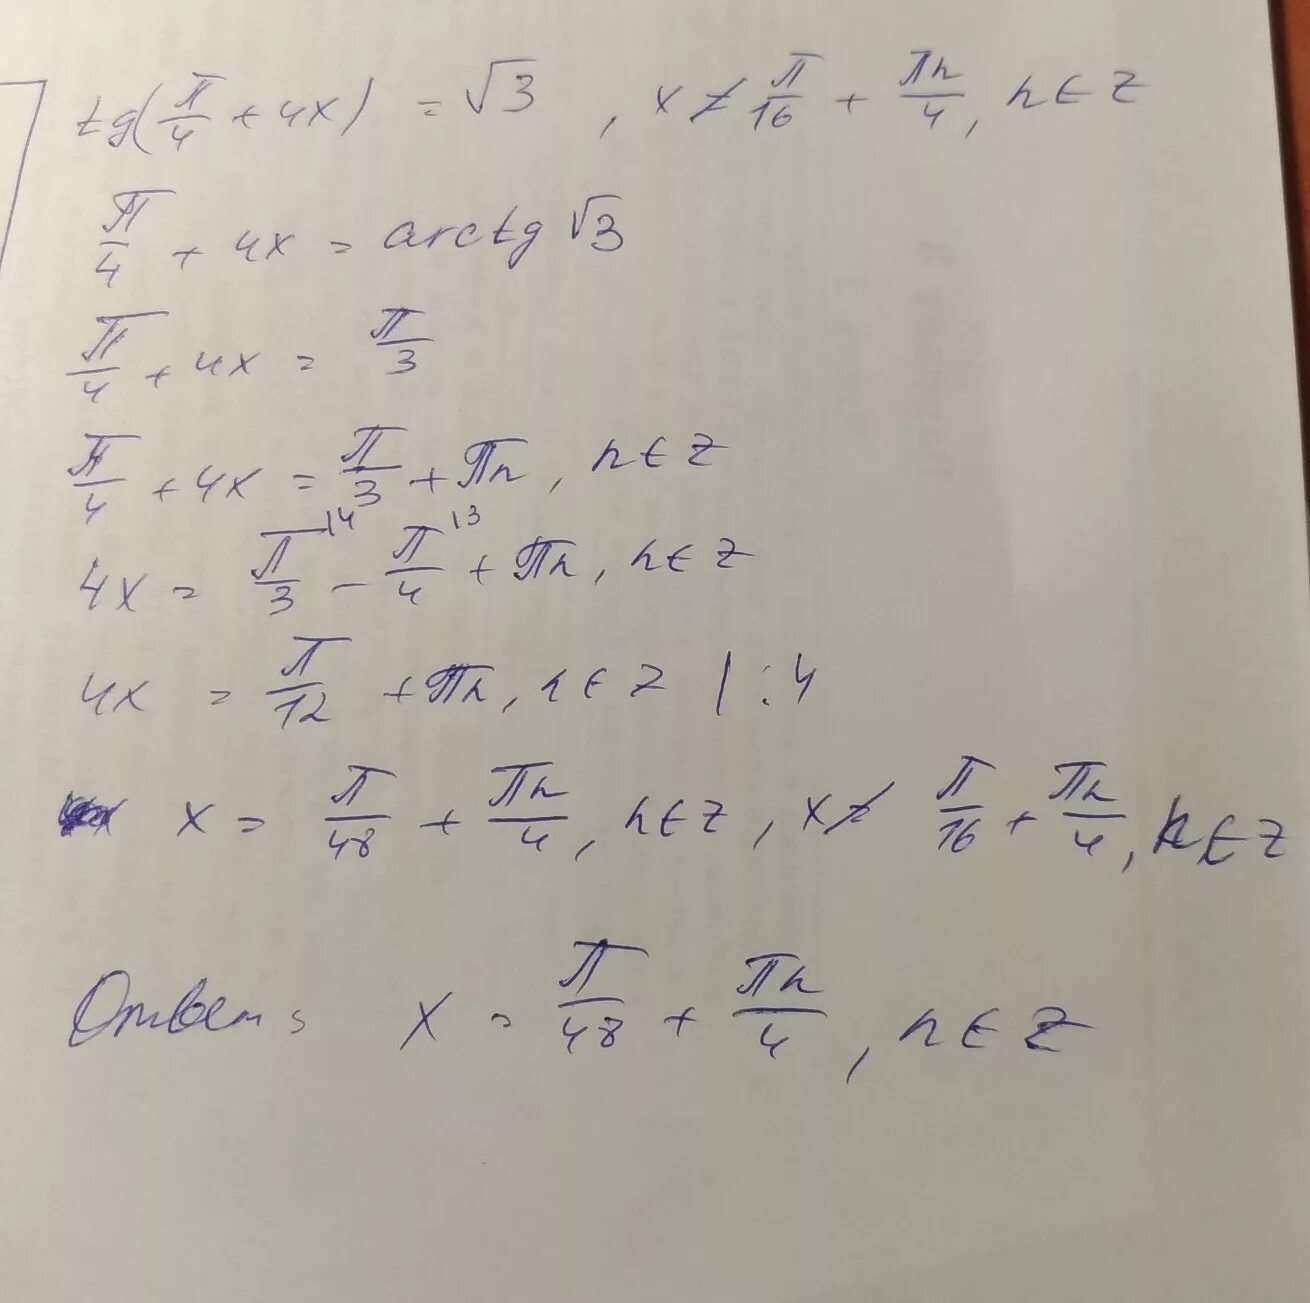 tg(π/4 + 4x) = √3, x ≠ π/16 + πn/4, n ∈ Z
π/4 + 4x = arctg √3
π/4 + 4x = π/3
π/4 + 4x = π/3 + πn, n ∈ Z
4x = π/3 \4 − π/4 \3 + πn, n ∈ Z
4x = π/12 + πn, n ∈ Z | : 4
x = π/48 + πn/4, n ∈ Z, x ≠ π/16 + πn/4, n ∈ Z
Ответ: x = π/48 + πn/4, n ∈ Z